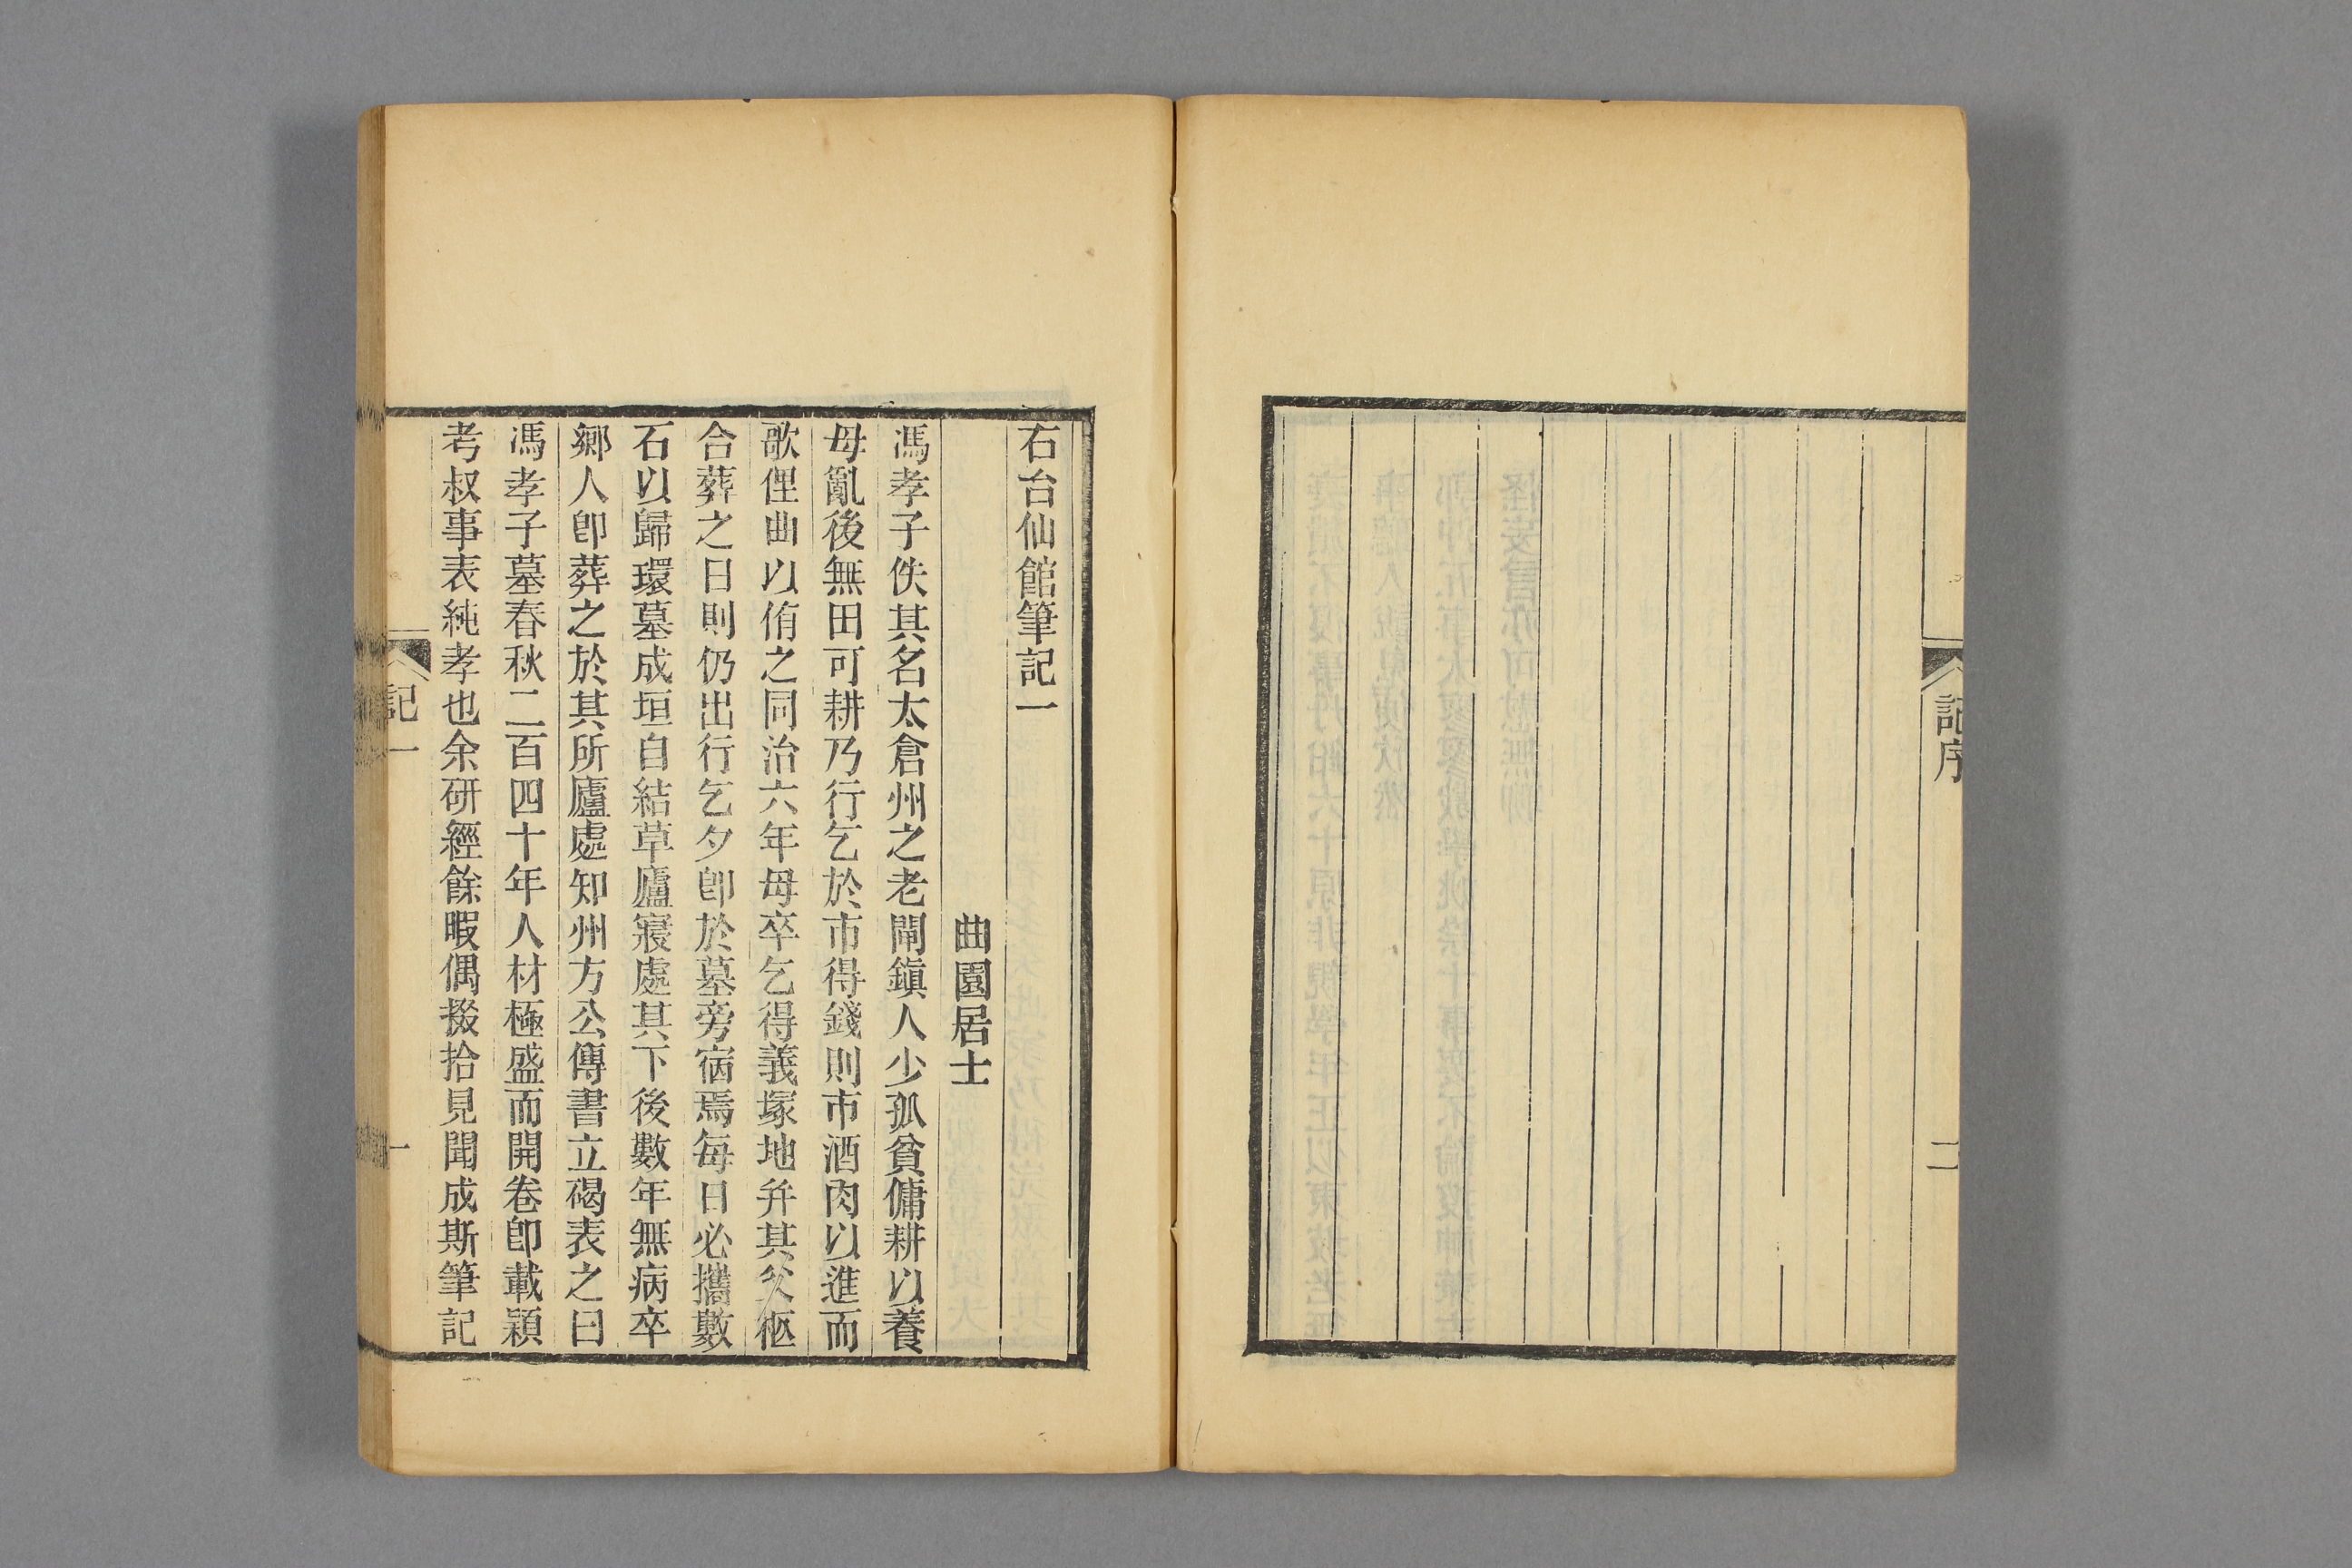 記序
二
右台仙館筆記一
曲園居士
馮孝子佚其名太倉州之老閘鎮人少孤貧傭耕以養
母亂後無田可耕乃行乞於市得錢則市酒肉以進而
歌俚曲以侑之同治六年母卒乞得義塚地幷其父柩
合葬之日則仍出行乞夕卽於墓旁宿焉每日必攜數
石以歸環墓成垣自結草廬寢處其下後數年無病卒
鄉人卽葬之於其所廬處知州方公傳書立碣表之曰
馮孝子墓春秋二百四十年人材極盛而開卷卽載潁
考叔事表純孝也余研經餘暇偶掇拾見聞成斯筆記
記一
一